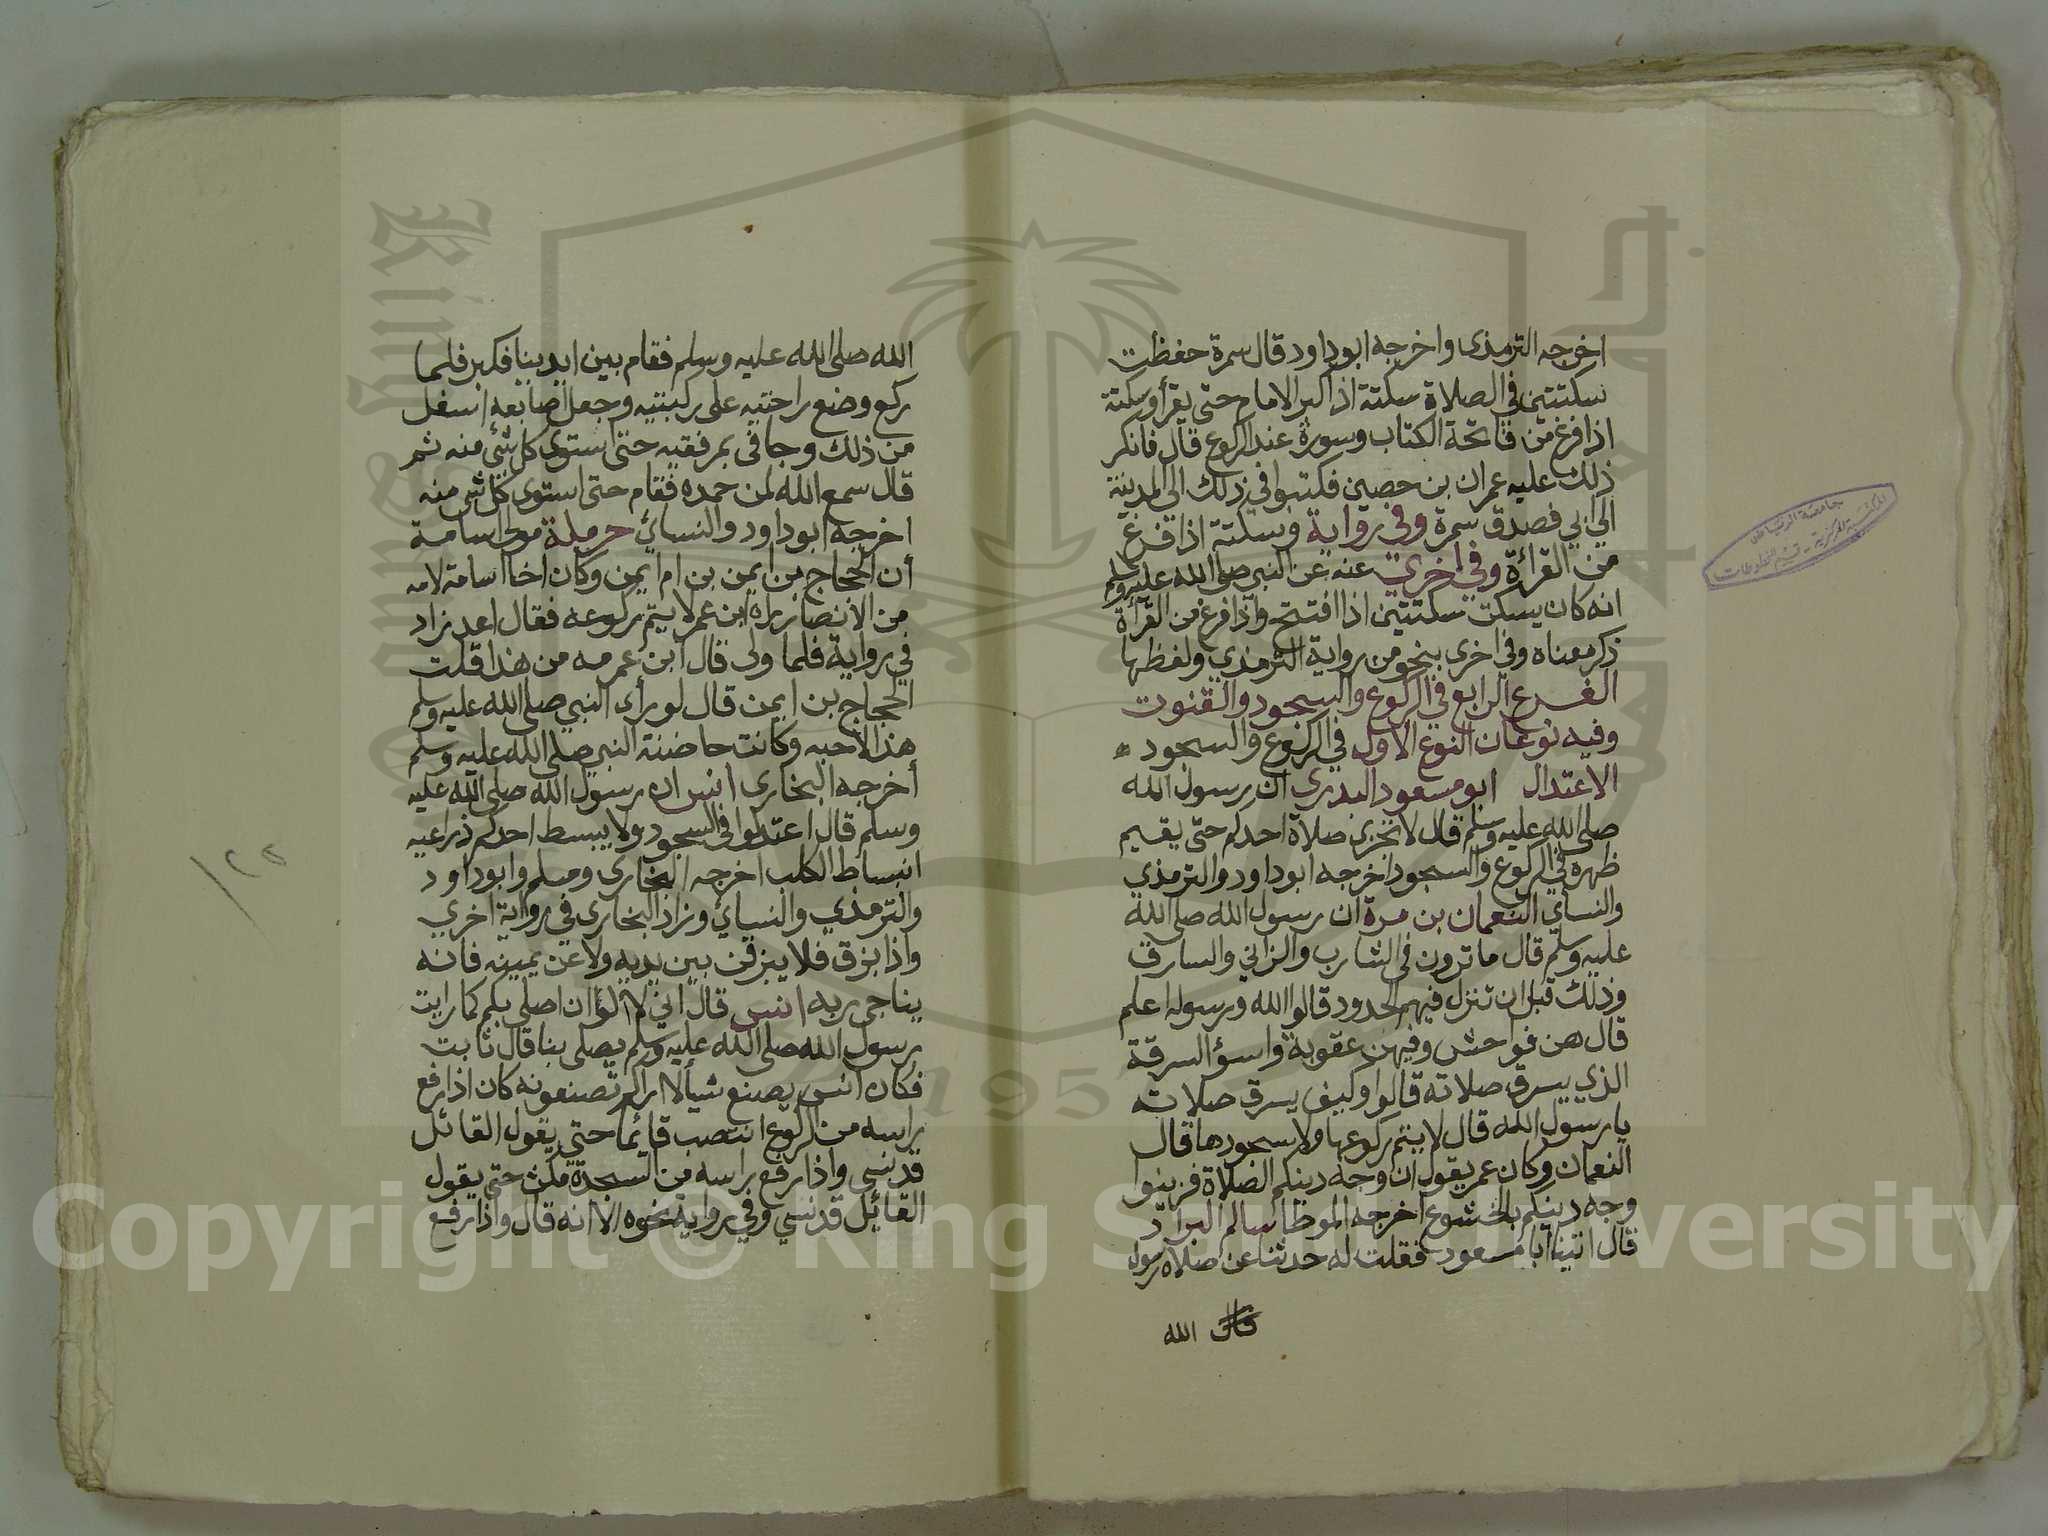 اخرجه الترمذى واخرجه ابو داود قال سمرة حفظت
سكتتين في الصلاة سكتة اذا كبر الامام حتى يقرأ وسكتة
اذا فرغ من فاتحة الكتاب وسورة عند الركوع قال فانكر
ذلك عليه عمران بن حصين فكتبوا في ذلك الى المدينة
الى ابي فصدق سمرة وفي رواية وسكتة اذا فرغ
من القراءة وفي اخرى عنه عن النبي صلى الله عليه وسلم
انه كان يسكت سكتتين اذا افتتح واذا فرغ من القرأة
ذكر معناه وفي اخرى بنحو من رواية الترمذي ولفظها
الفرع الرابع في الركوع والسجود والقنوت
وفيه نوعان النوع الأول في الركوع والسجود
الاعتدال ابو مسعود البدرى ان رسول الله
صلى الله عليه وسلم قال لا تجزئ صلاة احدكم حتى يقيم
ظهره في الركوع والسجود اخرجه ابو داود والترمذي
والنساي النعمان بن مرة ان رسول الله صلى الله
عليه وسلم قال ما ترون في الشارب والزاني والسارق
وذلك قبل ان تنزل فيهم الحدود قالوا الله ورسوله اعلم
قال هن فواحش وفيهن عقوبة واسؤ السرقة
الذي يسرق صلاته قالوا وكيف يسرق صلاته
يا رسول الله قال لا يتم ركوعها ولا سجودها قال
النعمان وكان عمر يقول ان وجه دينكم الصلاة فزينوا
وجه دينكم بالخشوع اخرجه الموطا سالم البراد
قال اتينا ابا مسعود فقلت له حدثنا عن صلاة رسول
الله
الله صلى الله عليه وسلم فقام بين ايدينا فكبر فلما
ركع وضع راحتيه على ركبتيه وجعل اصابعه اسفل
من ذلك وجافى بمرفقيه حتى استوى كل شئ منه ثم
قال سمع الله لمن حمده فقام حتى استوى كل شئ منه
اخرجه ابو داود والنسائ حرملة مولى اسامة
أن الحجاج بن ايمن بن ام ايمن وكان اخا اسامة لامه
من الأنصار رآه ابن عمر لا يتم ركوعه فقال اعد زاد
في رواية فلما ولى قال ابن عمر مه من هذا قلت
الحجاج بن ايمن قال لو رأى النبي صلى الله عليه وسلم
هذا لأحبه وكانت حاضنة النبي صلى الله عليه وسلم
أخرجه البخارى انس ان رسول الله صلى الله عليه
وسلم قال اعتدلوا في السجود ولا يبسط احدكم ذراعيه
انبساط الكلب اخرجه البخارى ومسلم وابو داود
والترمذي والنسائ وزاد البخارى في رواية اخرى
واذا بزق فلا يبزقن بين يديه ولا عن يمينه فانه
يناجى ربه انس قال اني لا آلو ان اصلى بكم كما رايت
رسول الله صلى الله عليه وسلم يصلى بنا قال ثابت
فكان انس يصنع شيألا اراكم تصنعونه كان اذا رفع
راسه من الركوع انتصب قائما حتى يقول القائل
قد نسي واذا رفع راسه من السجدة مكث حتى يقول
القائل قد نسي وفي رواية نحوه الا انه قال واذا رفع
١٢٢
جامعة الرياض
المكتبة المركزية - قسم المخطوطات
King Saud University
1957
Copyright © King Saud University